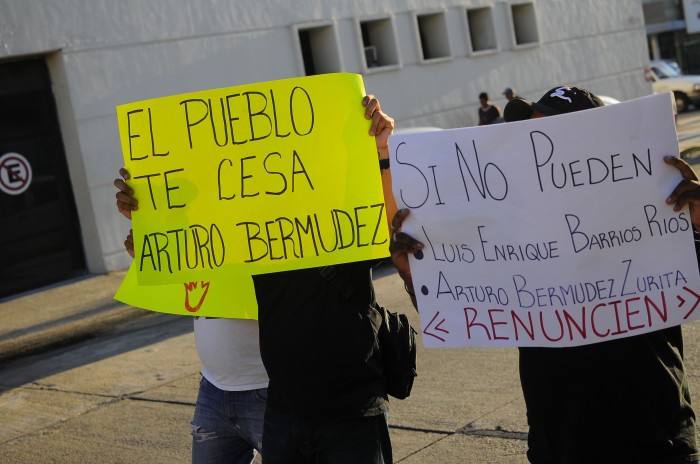 EL PUEBLO
TE CESA
ARTURO BERMUDEZ
SI NO PUEDEN
• LUIS ENRIQUE BARRIOS RIOS
• ARTURO BERMUDEZ ZURITA
<< RENUNCIEN >>
E